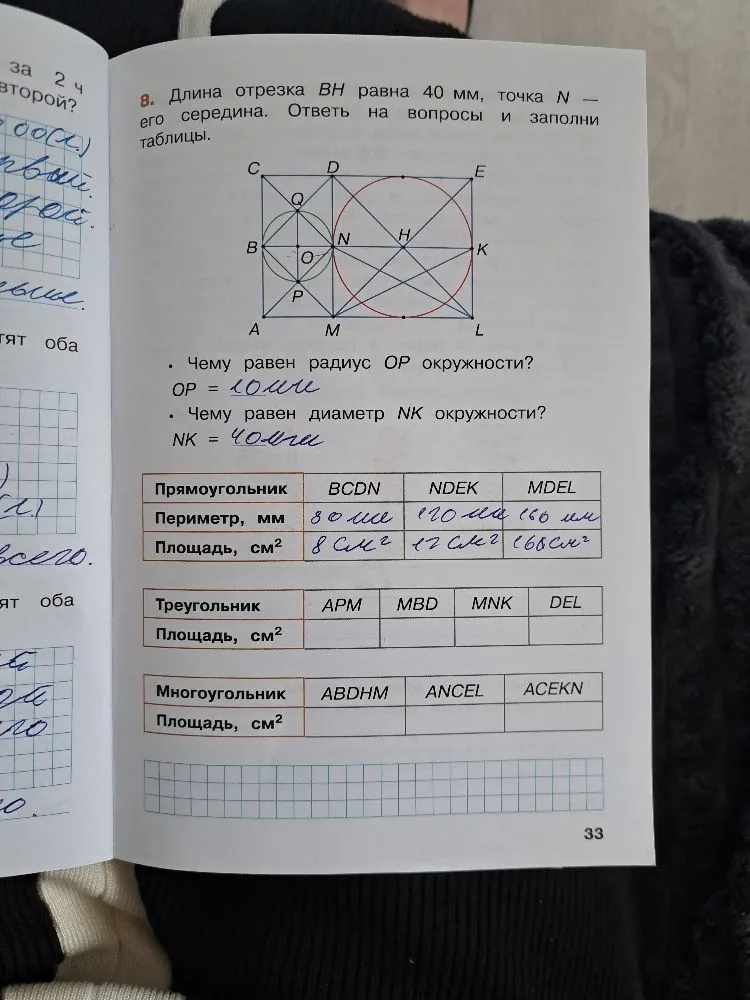 за 2 ч
второй?
00(л.)
рвый.
орой.
тят оба
(л.)
всего.
ят оба
ой
ого
о.
8. Длина отрезка BH равна 40 мм, точка N —
его середина. Ответь на вопросы и заполни
таблицы.
C D E
Q
B O N H K
P
A M L
• Чему равен радиус OP окружности?
OP = 10мм
• Чему равен диаметр NK окружности?
NK = 40мм
Прямоугольник BCDN NDEK MDEL
Периметр, мм 80 мм 120 мм 160 мм
Площадь, см² 8 см² 12 см² 160см²
Треугольник APM MBD MNK DEL
Площадь, см²
Многоугольник ABDHM ANCEL ACEKN
Площадь, см²
33